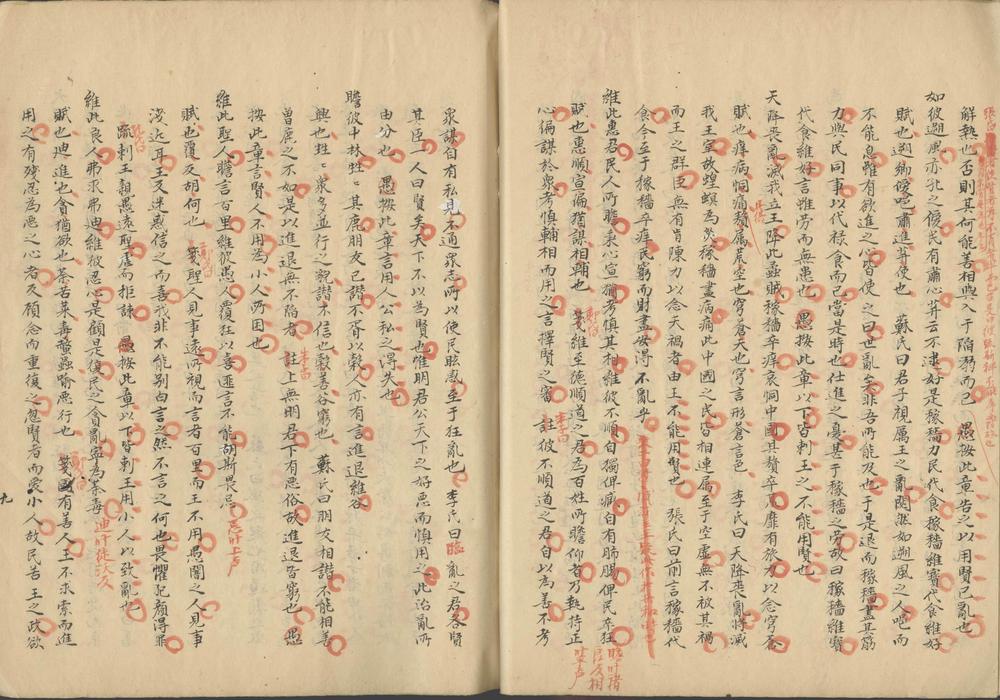 解熱也否則其何能善相與入于陷溺而已 愚按此章告之以用賢已亂也
如彼遡風亦孔之僾民有肅心荓云不逮好是稼穡力民代食稼穡維寶代食維好
賦也遡鄉僾唈肅進荓使也 蘇氏曰君子視厲王之亂悶然如遡風之人唈而
不能息雖有欲進之心皆使之曰世亂矣非吾所能及也于是退而稼穡盡其筋
力與民同事以代祿食而已當是時也仕進之憂甚于稼穡之勞故曰稼穡維寶
代食維好言雖勞而無患也 愚按此章以下皆刺王之不能用賢也
天降喪亂滅我立王降此蟊賊稼穡卒痒哀恫中國具贅卒荒靡有旅力以念穹蒼
賦也痒病恫痛贅屬荒空也穹蒼天也穹言形蒼言色 李氏曰天降喪亂將滅
我王室故蝗螟為災稼穡盡病痛此中國之民皆相連属至于空虛無不被其禍
而王之群臣無有肯陳力以念天禍者由王不能用賢也 張氏曰前言稼穡代
食今至于稼穡卒痒民窮而財盡安得不亂乎
維此惠君民人所瞻秉心宣猶考慎其相維彼不順自獨俾臧自有肺腸俾民卒狂
賦也惠順宣徧猶謀相輔也 箋維至德順道之君為百姓所瞻仰者乃執持正
心徧謀於衆考慎輔相而用之言擇賢之審 註彼不順道之君自以為善不考
衆謀自有私見不通衆志所以使民眩惑至于狂亂也 李氏曰臨亂之君各賢
其臣一人曰賢矣天下不以為賢也惟明君公天下之好惡而慎用之此治亂所
由分也 愚按此章言用人公私之得失也
瞻彼中林甡甡其鹿朋友已譖不胥以穀人亦有言進退維谷
興也甡甡衆多並行之貌譖不信也穀善谷窮也 蘇氏曰朋友相譖不能相善
曽鹿之不如是以進退無不陷者 註上無明君下有惡俗故進退皆窮也 愚
按此章言賢人不用為小人所困也
維此聖人瞻言百里維彼愚人覆狂以喜匪言不能胡斯畏忌
賦也覆反胡何也 箋聖人見事遠所視而言者百里而王不用愚闇之人見事
淺近耳王反迷惑信之而喜我非不能別白言之然不言之何也畏懼犯顔得罪
疏刺王親愚遠聖虐而拒諫 愚按此章以下皆刺王用小人以致亂也
維此良人弗求弗迪維彼忍心是顧是復民之貪亂寧為荼毒
賦也迪進也貪猶欲也荼苦菜毒螫蟲喻惡行也 箋國有善人王不求索而進
用之有殘忍為惡之心者反顧念而重復之忽賢者而愛小人故民苦王之政欲
九